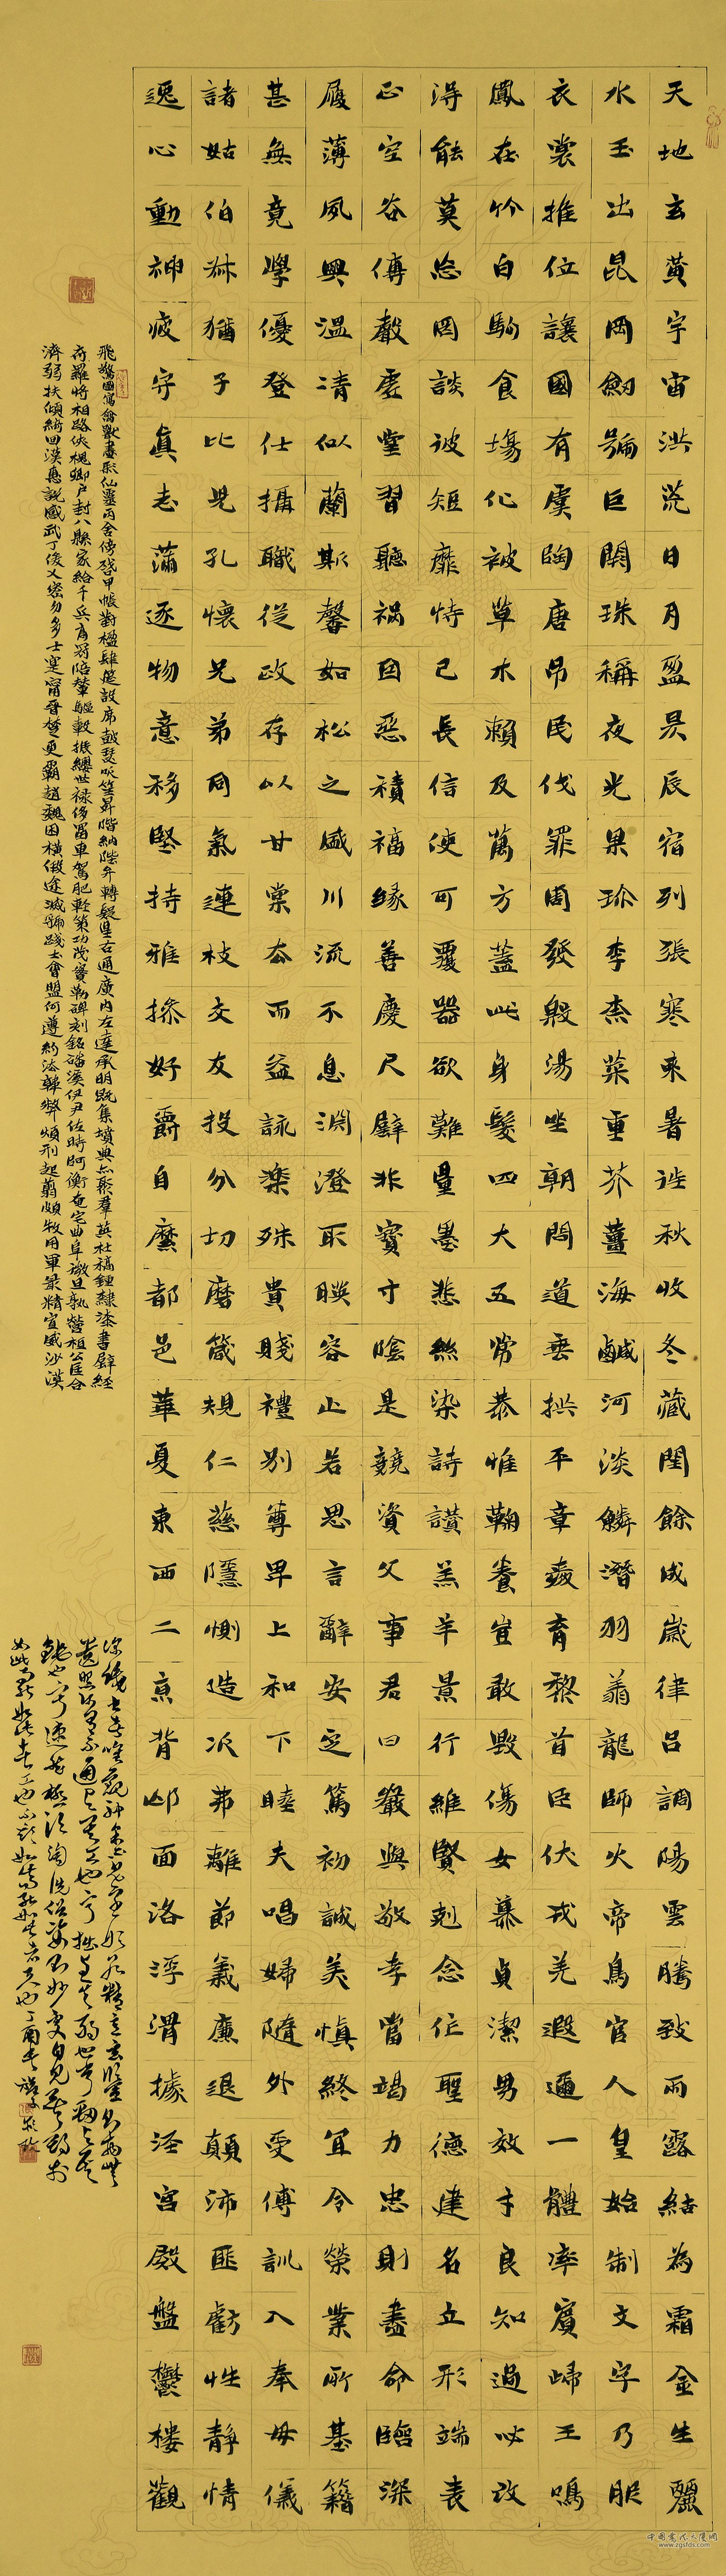 天地玄黃宇宙洪荒日月盈昃辰宿列張寒來暑往秋收冬藏閏餘成歲律呂調陽雲騰致雨露結為霜金生麗
水玉出昆岡劍號巨闕珠稱夜光果珍李柰菜重芥薑海鹹河淡鱗潛羽翔龍師火帝鳥官人皇始制文字乃服
衣裳推位讓國有虞陶唐弔民伐罪周發殷湯坐朝問道垂拱平章愛育黎首臣伏戎羌遐邇一體率賓歸王鳴
鳳在竹白駒食場化被草木賴及萬方蓋此身髮四大五常恭惟鞠養豈敢毀傷女慕貞潔男效才良知過必改
得能莫忘罔談彼短靡恃己長信使可覆器欲難量墨悲絲染詩讚羔羊景行維賢剋念作聖德建名立形端表
正空谷傳聲虛堂習聽禍因惡積福緣善慶尺璧非寶寸陰是競資父事君曰嚴與敬孝當竭力忠則盡命臨深
履薄夙興溫清似蘭斯馨如松之盛川流不息淵澄取暎容止若思言辭安定篤初誠美慎終宜令榮業所基籍
甚無竟學優登仕攝職從政存以甘棠去而益詠樂殊貴賤禮別尊卑上和下睦夫唱婦隨外受傅訓入奉母儀
諸姑伯叔猶子比兒孔懷兄弟同氣連枝交友投分切磨箴規仁慈隱惻造次弗離節義廉退顛沛匪虧性靜情
逸心動神疲守真志滿逐物意移堅持雅操好爵自縻都邑華夏東西二京背邙面洛浮渭據涇宮殿盤鬱樓觀
飛驚圖寫禽獸畫彩仙靈丙舍傍啓甲帳對楹肆筵設席鼓瑟吹笙昇階納陛弁轉疑星右通廣內左達承明既集墳典亦聚群英杜稿鍾隸漆書壁經
府羅將相路俠槐卿戶封八縣家給千兵高冠陪輦驅轂振纓世祿侈富車駕肥輕策功茂實勒碑刻銘磻溪伊尹佐時阿衡奄宅曲阜微旦孰營桓公匡合
濟弱扶傾綺回漢惠說感武丁俊乂密勿多士寔甯晉楚更霸趙魏困橫假途滅虢踐土會盟何遵約法韓弊煩刑起翦頗牧用軍最精宣威沙漠
深識書者唯觀神采不見字形若精意玄鑒則物無
遺照何有不通
中国书法人陵网
www.zgsfds.com